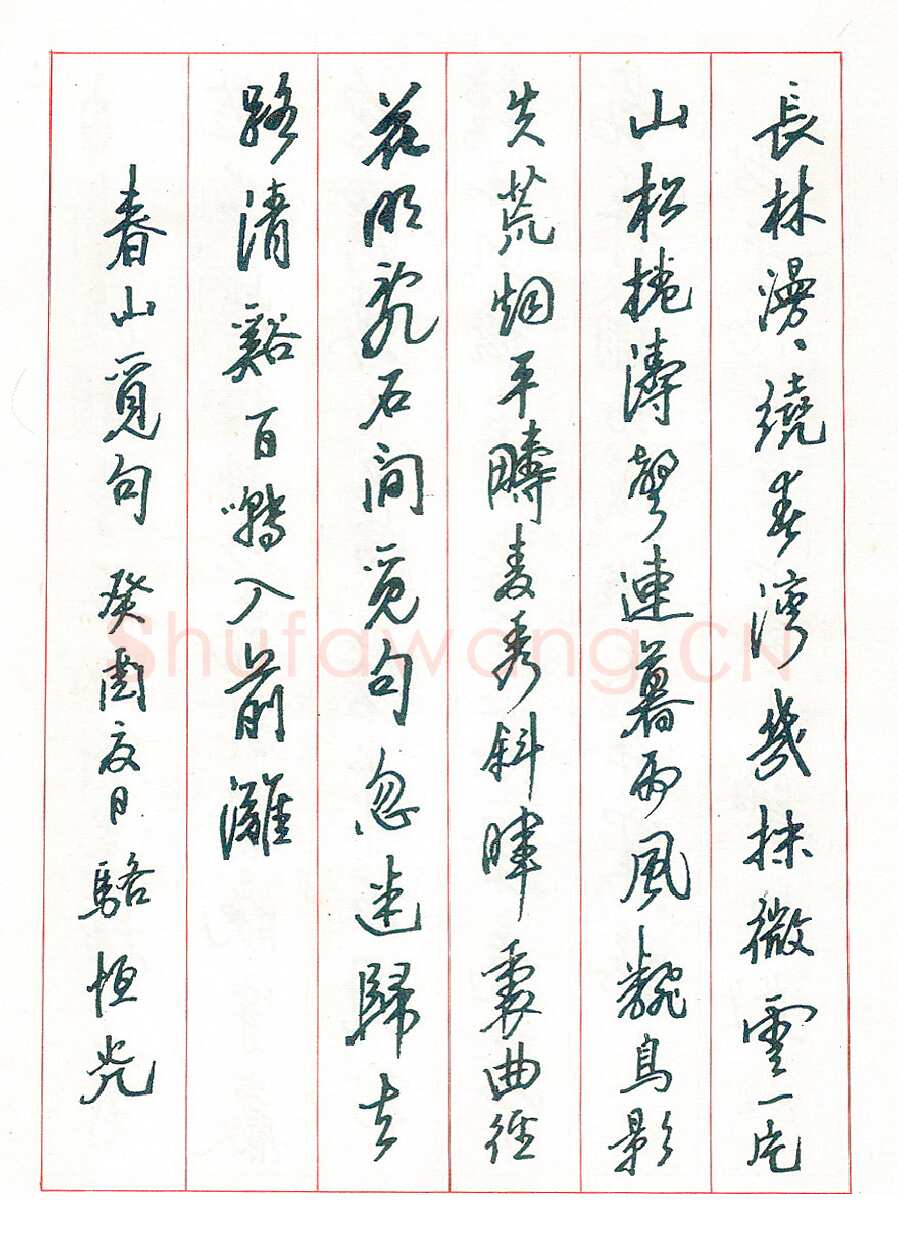 長林漫〻繞春灣幾抹微雲一片
山松捲濤聲連暮雨風飜鳥影
失荒烟平疇麦秀斜暉裏曲徑
花明亂石間覓句忽迷歸去
路清谿百囀入前灘
春山覓句 癸酉夏日 駱恒光
Shufawang.CN